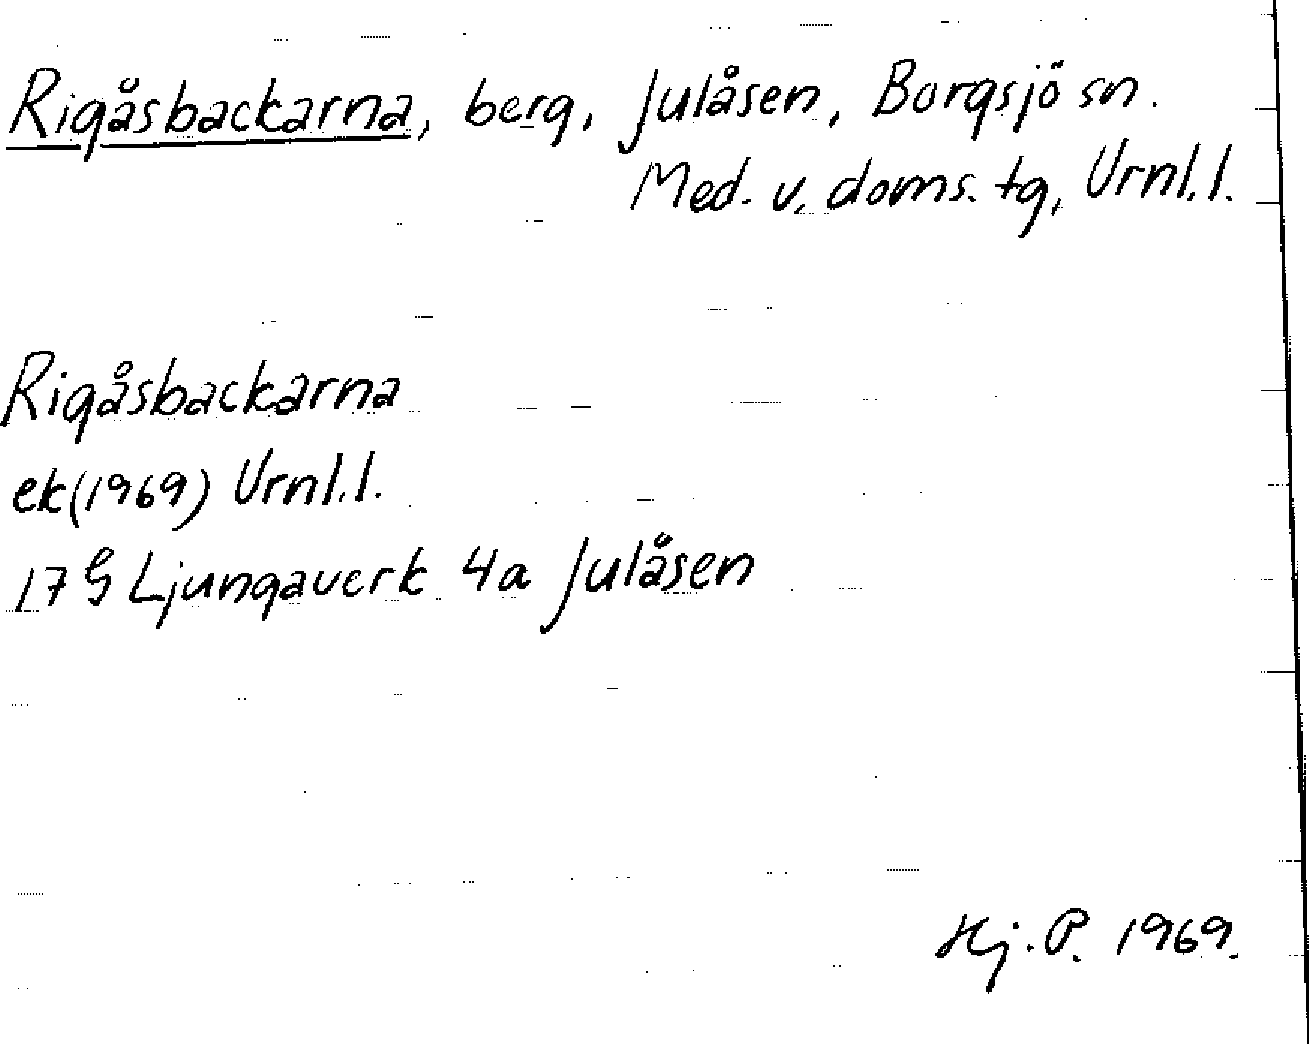 Rigåsbackarna, berg, Julåsen, Borgsjö sn.
Med. v. doms. tg, Vrnl.l.
Rigåsbackarna
ek(1969) Vrnl.l.
17 G Ljungaverk 4a Julåsen
Hj. P. 1969.